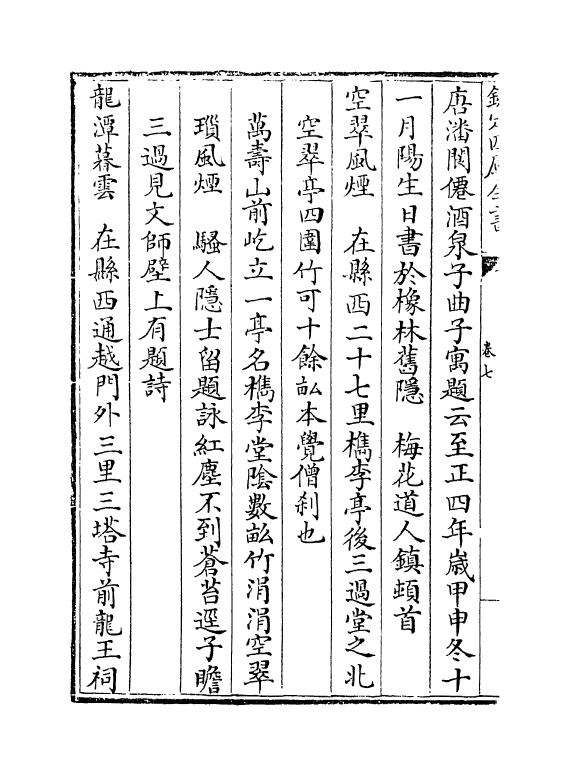 欽定四庫全書
卷七
唐潘閬僊酒泉子曲子寓題云至正四年歲甲申冬十
一月陽生日書於橡林舊隱　梅花道人鎮頓首
空翠風煙　在縣西二十七里檇李亭後三過堂之北
空翠亭四圍竹可十餘畝本覺僧刹也
萬壽山前屹立一亭名檇李堂隂數畝竹涓涓空翠
瑣風煙　騷人隱士留題詠紅塵不到蒼苔逕子瞻
三過見文師壁上有題詩
龍潭暮雲　在縣西通越門外三里三塔寺前龍王祠